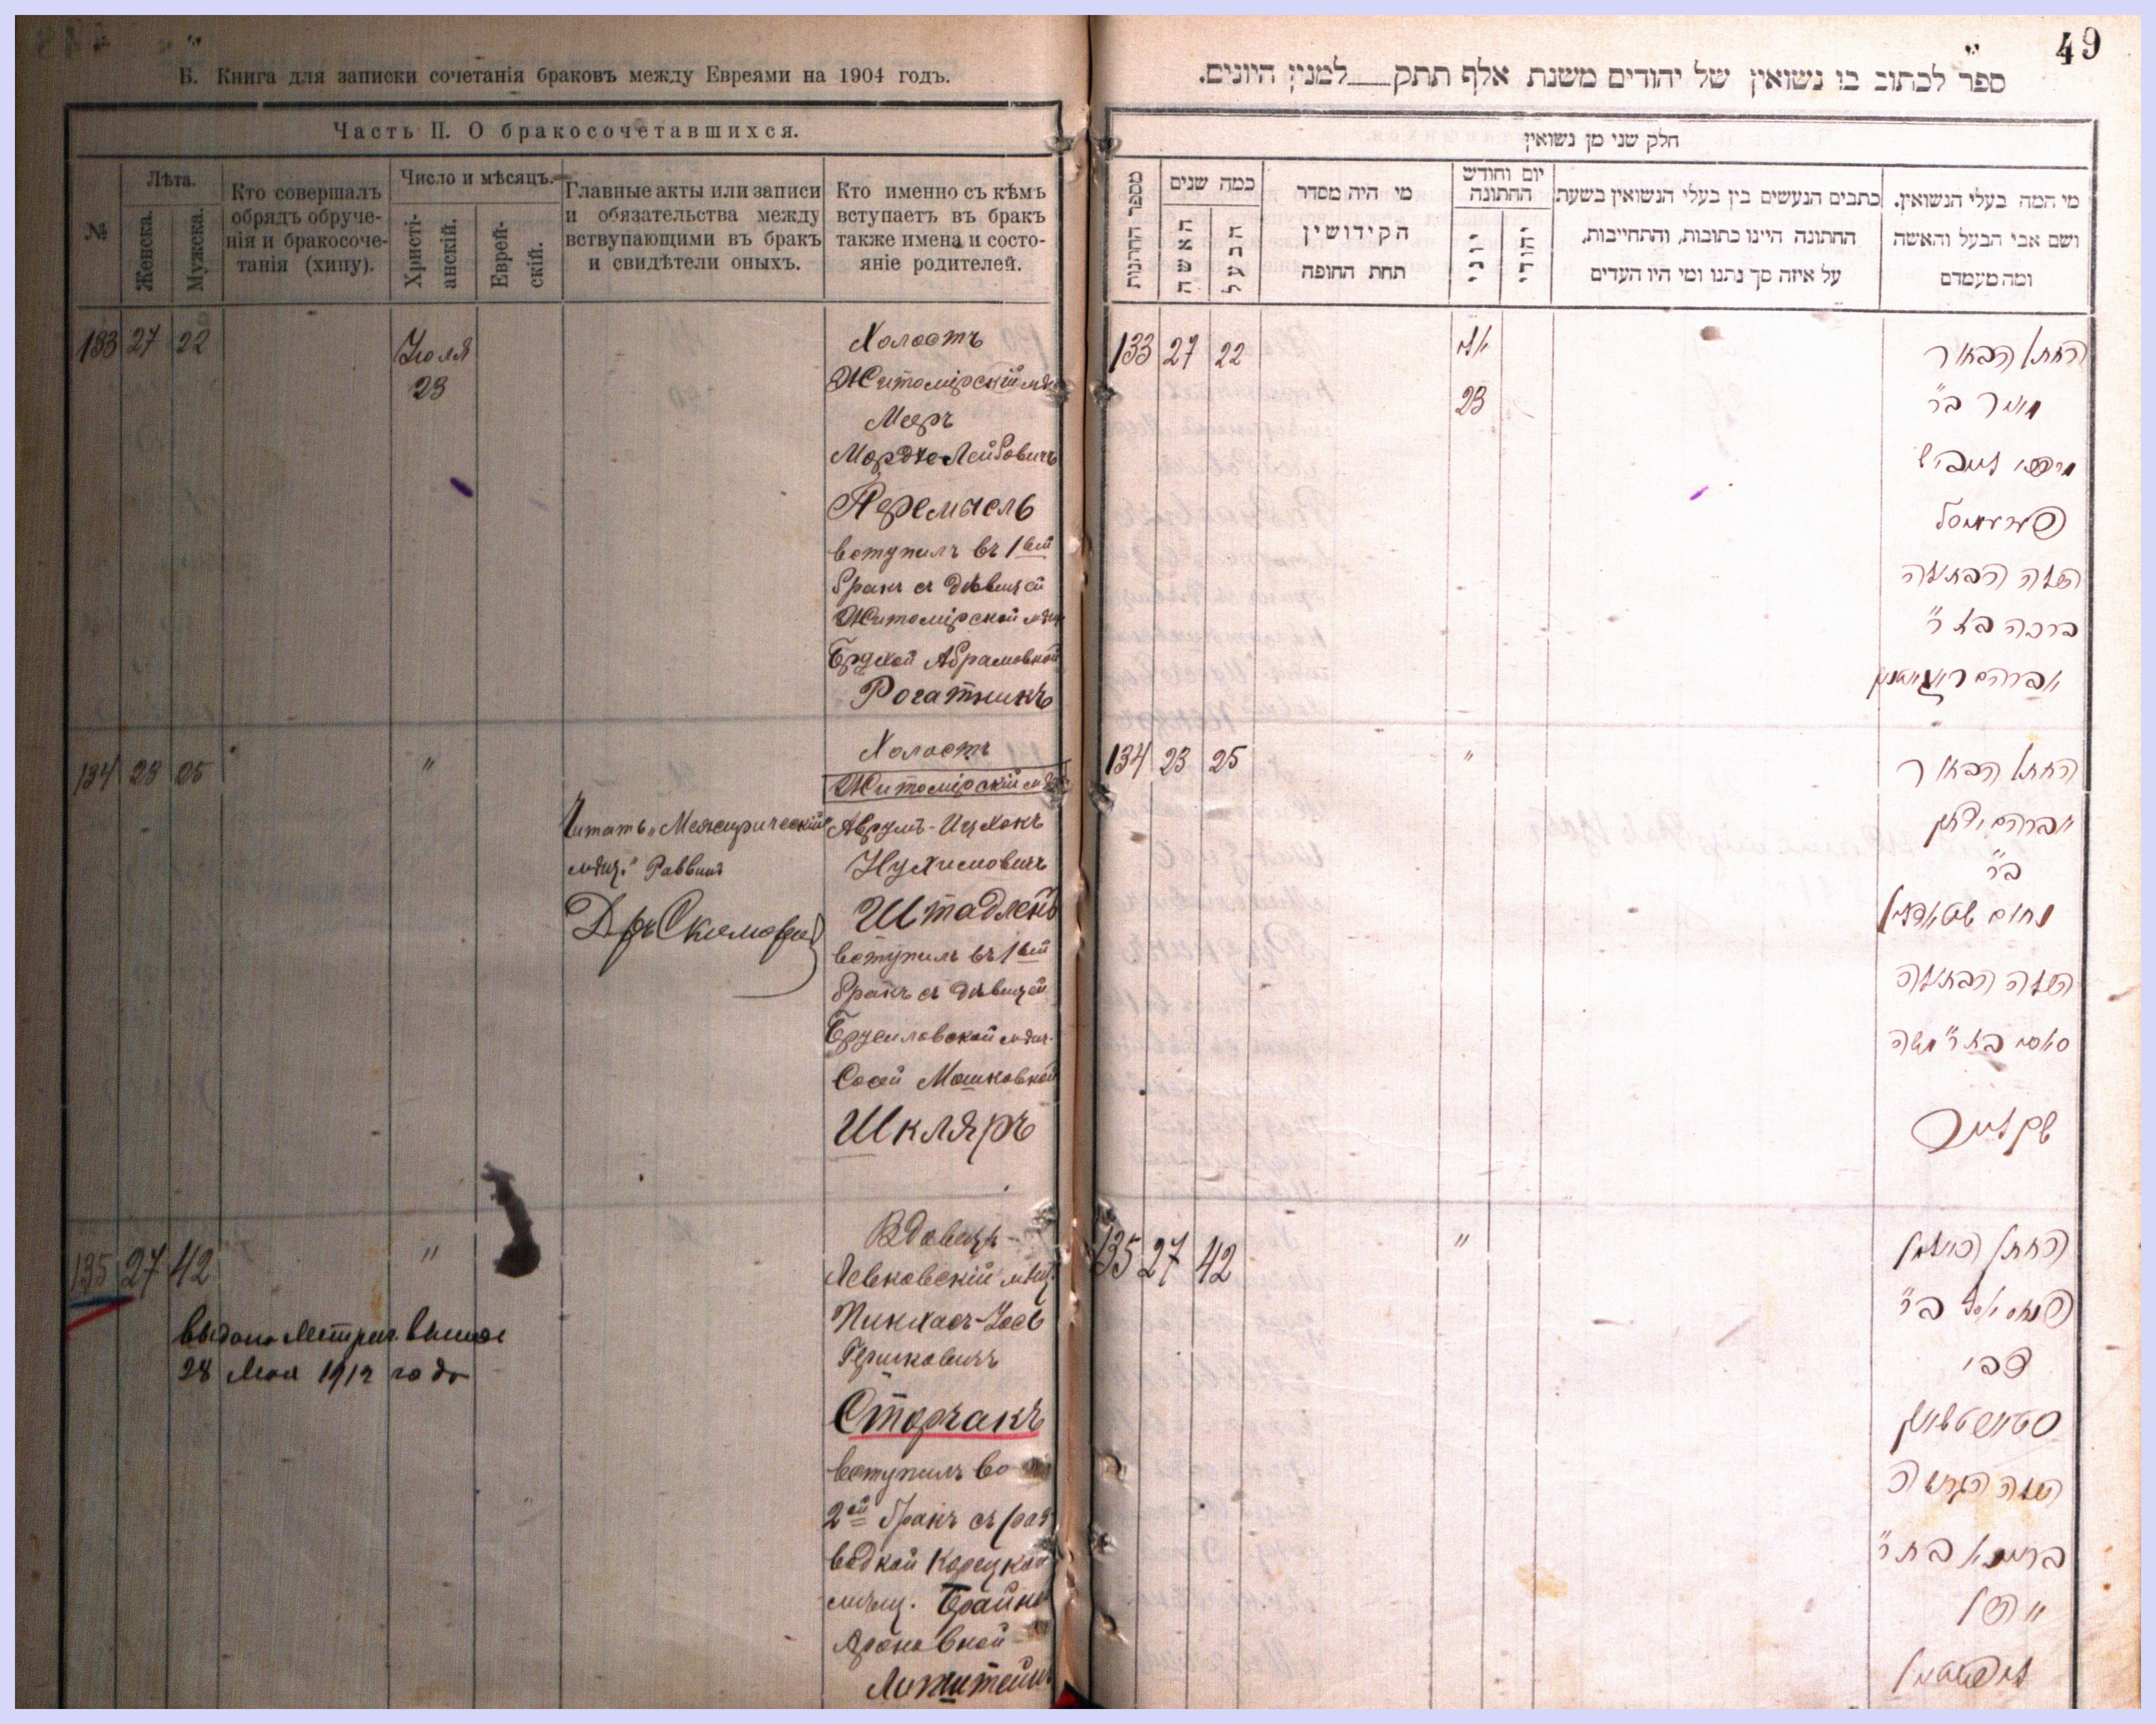 Б. Книга для записки сочетанія браковъ между Евреями на 1904 годъ.
Часть II. О бракосочетавшихся.
№
Лѣта.
Женска.
Мужска.
Кто совершалъ
обрядъ обруче-
нія и бракосоче-
танія (хипу).
Число и мѣсяцъ.
Христі-
анскій.
Еврей-
скій.
Главные акты или записи
и обязательства между
вствупающими въ бракъ
и свидѣтели оныхъ.
Кто именно съ кѣмъ
вступаетъ въ бракъ
также имена и состо-
яніе родителей.
133 27 22
Іюля
23
Холостъ
Житомірскій мѣщ
Мееръ
Мордко-Лейбовичъ
Перемысль
вступилъ въ 1вый
бракъ съ дѣвицей
Житомірской мѣщ
Брухой Абрамовной
Рогатникъ
134 23 25
"
Холостъ
Житомірскій мѣщ
Аврумъ-Ицхокъ
Нухимовичъ
Штадленъ
вступилъ въ 1вый
бракъ съ дѣвицей
Брусиловской мѣщ.
Сосей Мошковной
Шкляръ
Читать „Межирическій
мѣщ." Раввинъ
135 27 42
"
Вдовецъ
Левковскій мѣщ.
Пинхасъ-Іось
Гершковичъ
Сторчакъ
вступилъ во
2ой бракъ съ раз
водкой Корецкой
мѣщ. Брайной
Ароновной
выдана Метрич. выпись
28 Мая 1912 года
49
ספר לכתוב בו נשואין של יהודים משנת אלף תתק למנין היונים.
חלק שני מן נשואין
מספר החתונות
כמה שנים
האשה
הבעל
מי היה מסדר
הקידושין
תחת החופה
יום וחודש
החתונה
יוני
יהודי
כתבים הנעשים בין בעלי הנשואין בשעת
החתונה היינו כתובות, והתחייבות,
על איזה סך נתנו ומי היו העדים
מי המה בעלי הנשואין.
ושם אבי הבעל והאשה
ומה מעמדם
133 27 22
23
החתן הבחור
מאיר ב"ר
מרדכי לייביש
פערעמיסל
עם הבתולה
ברכה בת ר'
אברהם
134 23 25
"
החתן הבחור
אברהם יצחק
ב"ר
נחום שטאדלין
עם הבתולה
סאסי בת ר' משה
שקליאר
135 27 42
"
החתן האלמן
פנחס יוסף ב"ר
צבי
עם הגרושה
בריינא בת ר'
אהרן